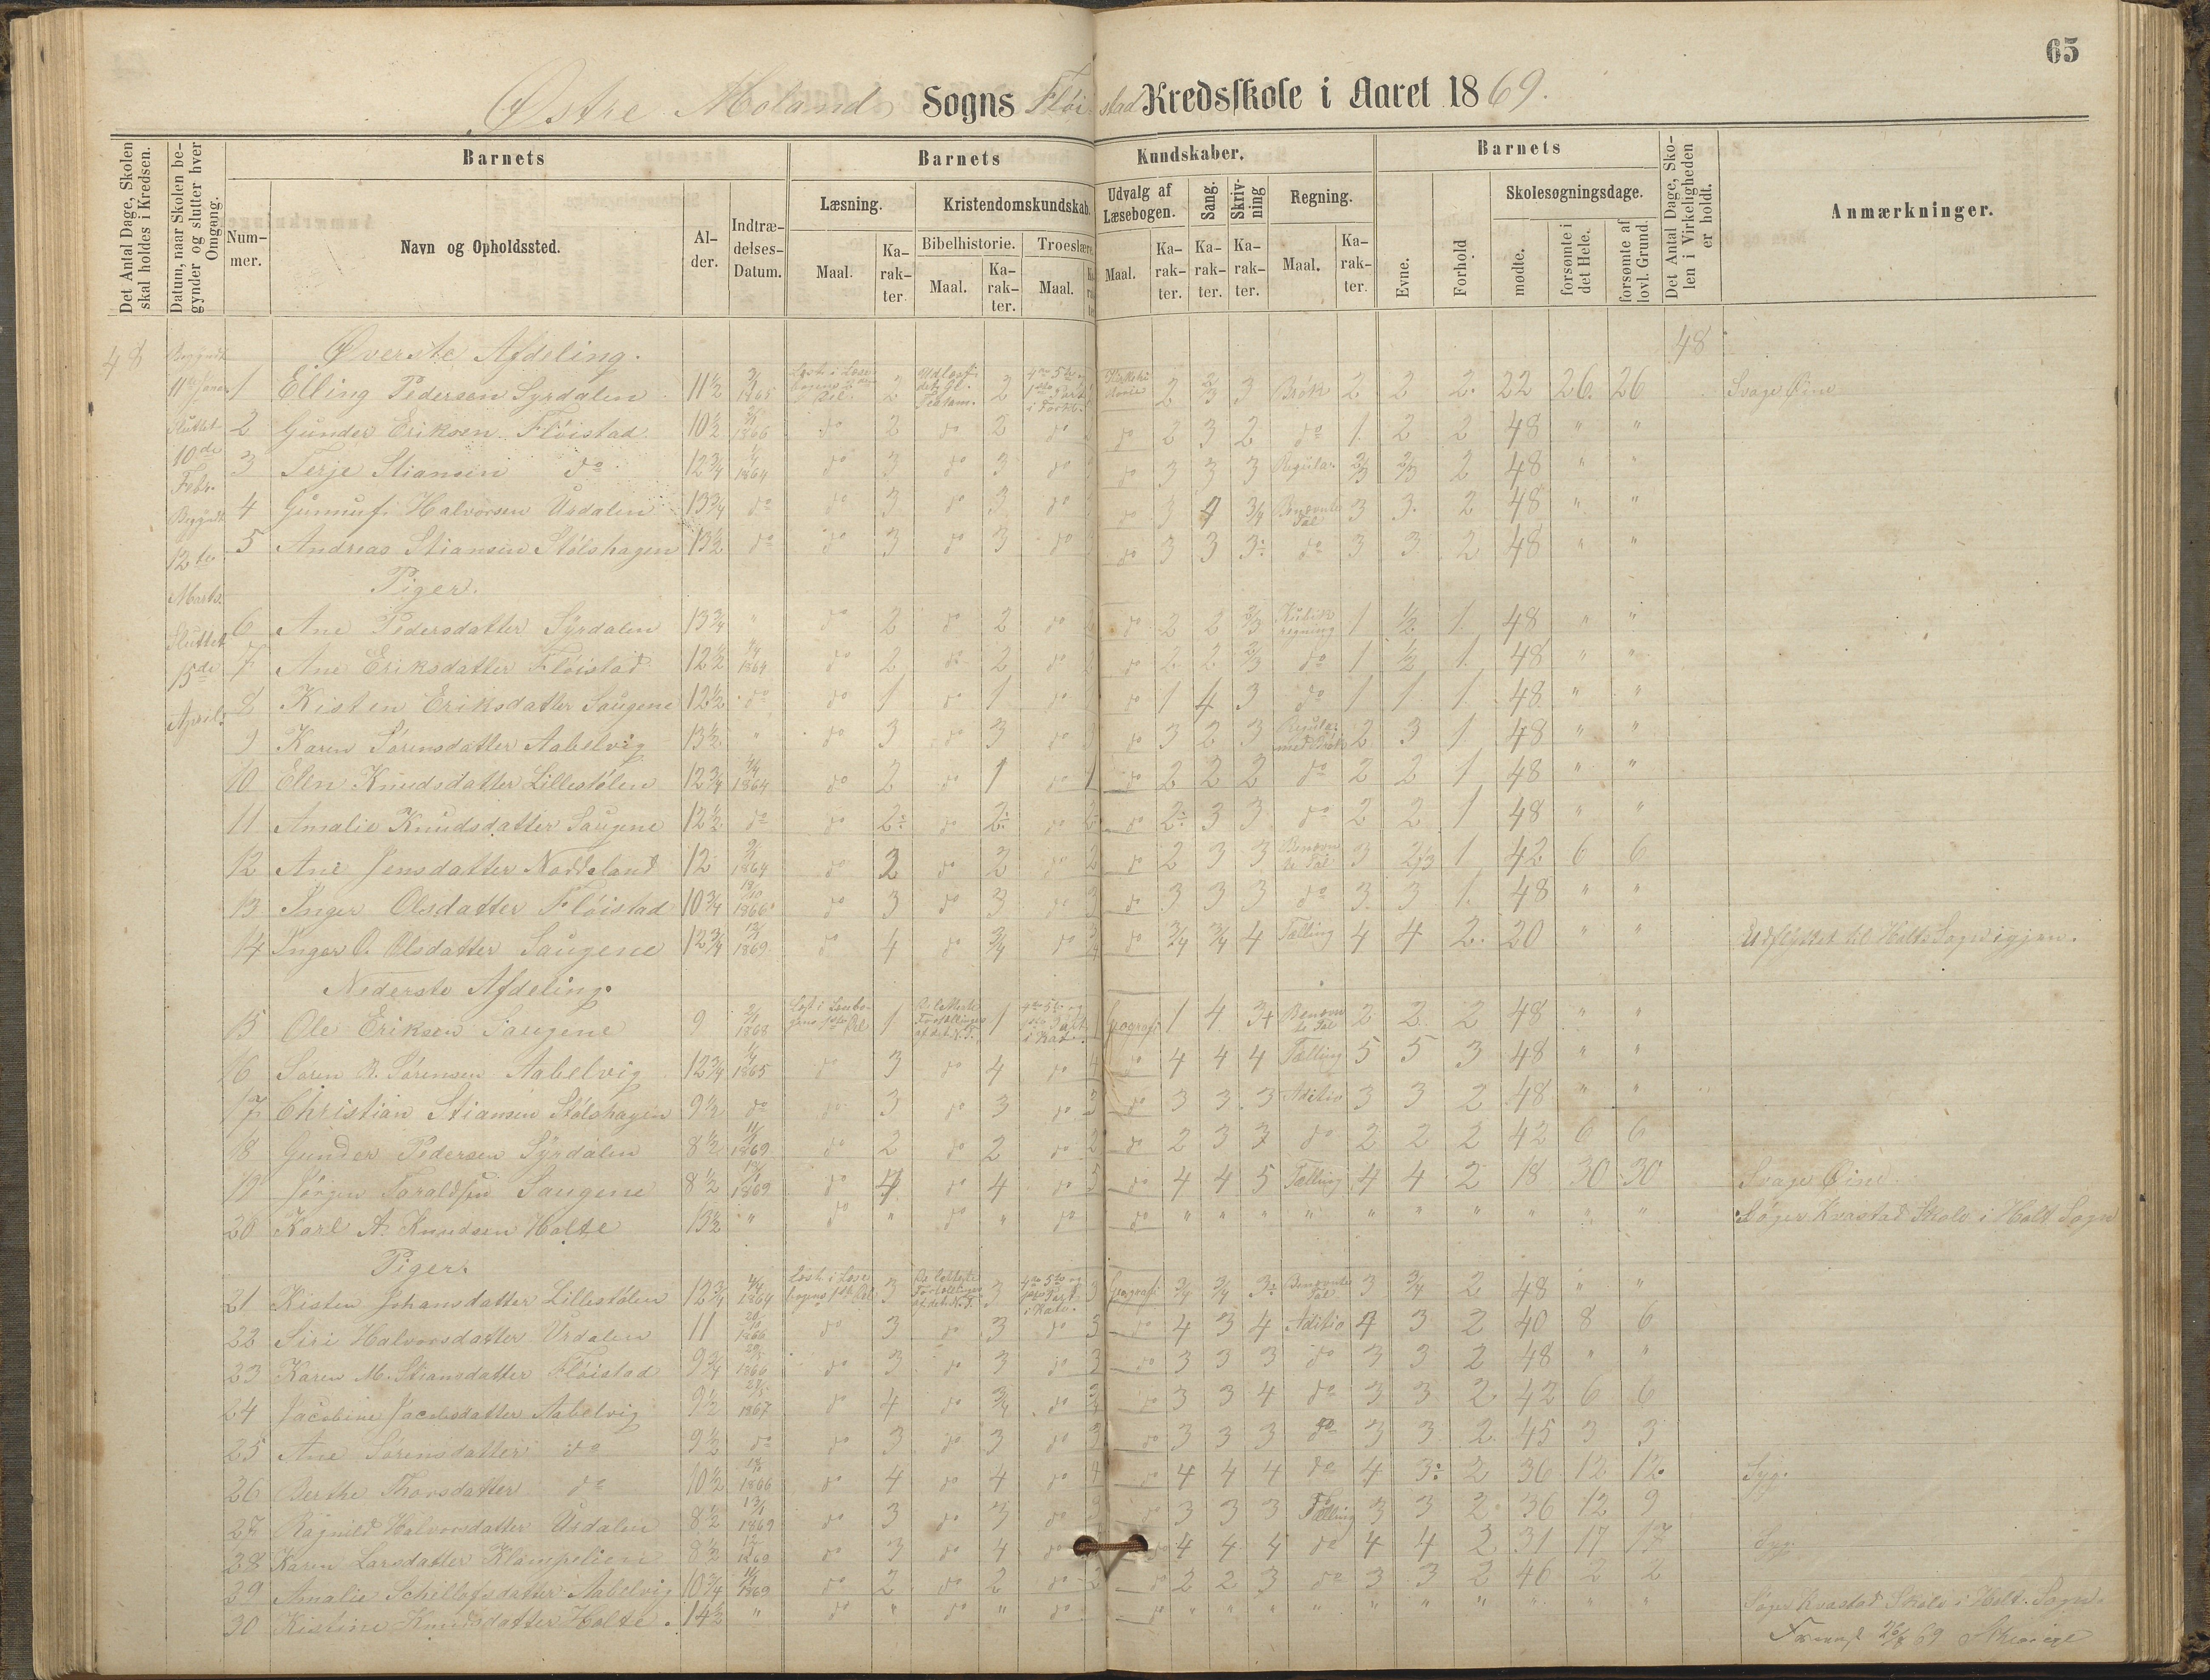 65
Østre Moland Sogns Fløistad Kredsskole i Aaret 1869.
Det Antal Dage, Skolen skal holdes i Kredsen.
Datum, naar Skolen begynder og slutter hver Omgang.
Barnets
Barnets Kundskaber.
Barnets
Det Antal Dage, Skolen i Virkeligheden er holdt.
Anmærkninger.
Nummer.
Navn og Opholdssted.
Alder.
Indtrædelses-Datum.
Læsning.
Kristendomskundskab.
Udvalg af Læsebogen.
Sang.
Skrivning
Regning.
Evne.
Forhold
Skolesøgningsdage.
Bibelhistorie. Troeslære.
Maal. Karakter. Maal. Karakter. Maal. Maal. Karakter. Karakter. Karakter. Maal. Karakter.
mødte. forsømte i det Hele. forsømte af lovl. Grund.
48 Begyndt Øverste Afdeling. 48
11te Janr. Sluttet 10de Febr. Begyndt 12te Marts. Sluttet 15de April.
1 Elling Pedersen Syrdalen 11½ 1865 2 2 2 2/3 3 Brøk 2 2 2. 22 26. 26 Svage Øine
2 Gunder Eriksen Fløistad 10½ 1866 do 2 do 2 do do 2 3 2 do 1. 2 2 48 " "
3 Terje Stiansen do 12¾ 1864 do 3 do 3 do do 3 3 3 2/3 2/3 2 48 " "
4 Gunnuf Halvorsen Urdalen 13¾ do do 3 do 3 do do 3 4 3/4 Benævnte Tal 3 3. 2 48 " "
5 Andreas Stiansen Stølshagen 13½ do do 3 do 3 do do 3 3 3: do 3 3 2 48 " "
Piger.
6 Ane Pedersdatter Syrdalen 13¾ " do 2 do 2 do do 2 2 2/3 Kubikregning 1 ½ 1. 48 " "
7 Ane Eriksdatter Fløistad 12½ 1864 do 2 do 2 do do 2 2 2/3 do 1 ½ 1. 48 " "
8 Kisten Eriksdatter Saugene 12½ do do 1 do 1 do do 1 4 3 do 1 1 1. 48 " "
9 Karen Sørensdatter Aabelvig 13½ " do 3 do 3 do do 3 2 3 2 3 1 48 " "
10 Elen Knudsdatter Lillestølen 12¾ 1864 do 2 do 1 do 1 do 2 2 2 do 2 2 1 48 " "
11 Amalie Knudsdatter Saugene 12½ do do 2: do 2: do 2 do 2: 3 3 do 2 2 1 48 " "
12 Ane Jensdatter Naddeland 12 1864 do 2 do 2 do 2 do 2 3 3 Benævnte Tal 3 2/3 1 42 6 6
13 Inger Olsdatter Fløistad 10¾ 1866 do 3 do 3 do 3 do 3 3 3 do 3 3 1. 48 " "
14 Inger O. Olsdatter Saugene 12¾ 1869 do 4 do 3/4 do 3/4 do 3/4 3/4 4 Tælling 4 4 2. 20 " " Udflyttet til Holts Sogn igjen.
Nederste Afdeling.
15 Ole Eriksen Saugene 9 1868 1 1 1 Geografi 1 4 3+ Benævnte Tal 2 2 2 48 " "
16 Søren R. Sørensen Aabelvig 12¾ 1865 do 3 do 4 do 4 do 4 4 4 Tælling 5 5 3 48 " "
17 Christian Stiansen Stølshagen 9½ do do 3 do 3 do 3 do 3 3 3 Aditio 3 3 2 48 " "
18 Gunder Pedersen Syrdalen 8½ 1869 do 2 do 2 do 2 do 2 3 3 do 2 2 2 42 6 6
19 Jørgen Taraldsen Saugene 8½ 1869 do 4 do 4 do 5 do 4 4 5 Tælling 4 4 2 18 30 30 Svage Øine.
20 Karl A. Knudsen Holte 13½ " do " do " do do " " " " " " " " " " Søger Kvastad Skole i Holt Sogn
Piger.
21 Kisten Johansdatter Lillestølen 12¾ 1864 3 3 3 Geografi 3/4 3/4 3: Benævnte Tal 3 3/4 2 48 " "
22 Siri Halvorsdatter Urdalen 11 1866 do 3 do 3 do 3 do 4 3 4 Aditio 4 3 2 40 8 6
23 Karen M. Stiansdatter Fløistad 9¾ 1866 do 3 do 3 do 3 do 3 3 3 do 3 3 2 48 " "
24 Jacobine Jacobsdatter Aabelvig 9½ 1867 do 4 do 3/4 do 3/4 do 3 3 4 do 3 3 2. 42 6 6
25 Ane Sørensdatter do 9½ do do 3 do 3 do 3 do 3 3 3 do 3 3 2. 45 3 3
26 Berthe Thorsdatter do 10½ 1866 do 4 do 4 do 4 do 4 4 4 do 4 3: 2 36 12 12. Syg.
27 Ragnild Halvorsdatter Urdalen 8½ 1869 do 3 do 3 do do 3 3 3 Tælling 3 3 2. 36 12 9
28 Karen Larsdatter Klampelien 8½ 1869 do 3 do 4 do do 4 4 4 do 4 4 2 31 17 17 Syg.
29 Amalie Schellefsdatter Aabelvig 10¾ 1869 do 2 do 2 do 2 do 2 2 3 do 3 3 2 46 2 2
30 Kistine Knudsdatter Holte. 14½ " do " do " do do " " " " " " " " " " Søger Kvastad Skole i Holt Sogn.
69